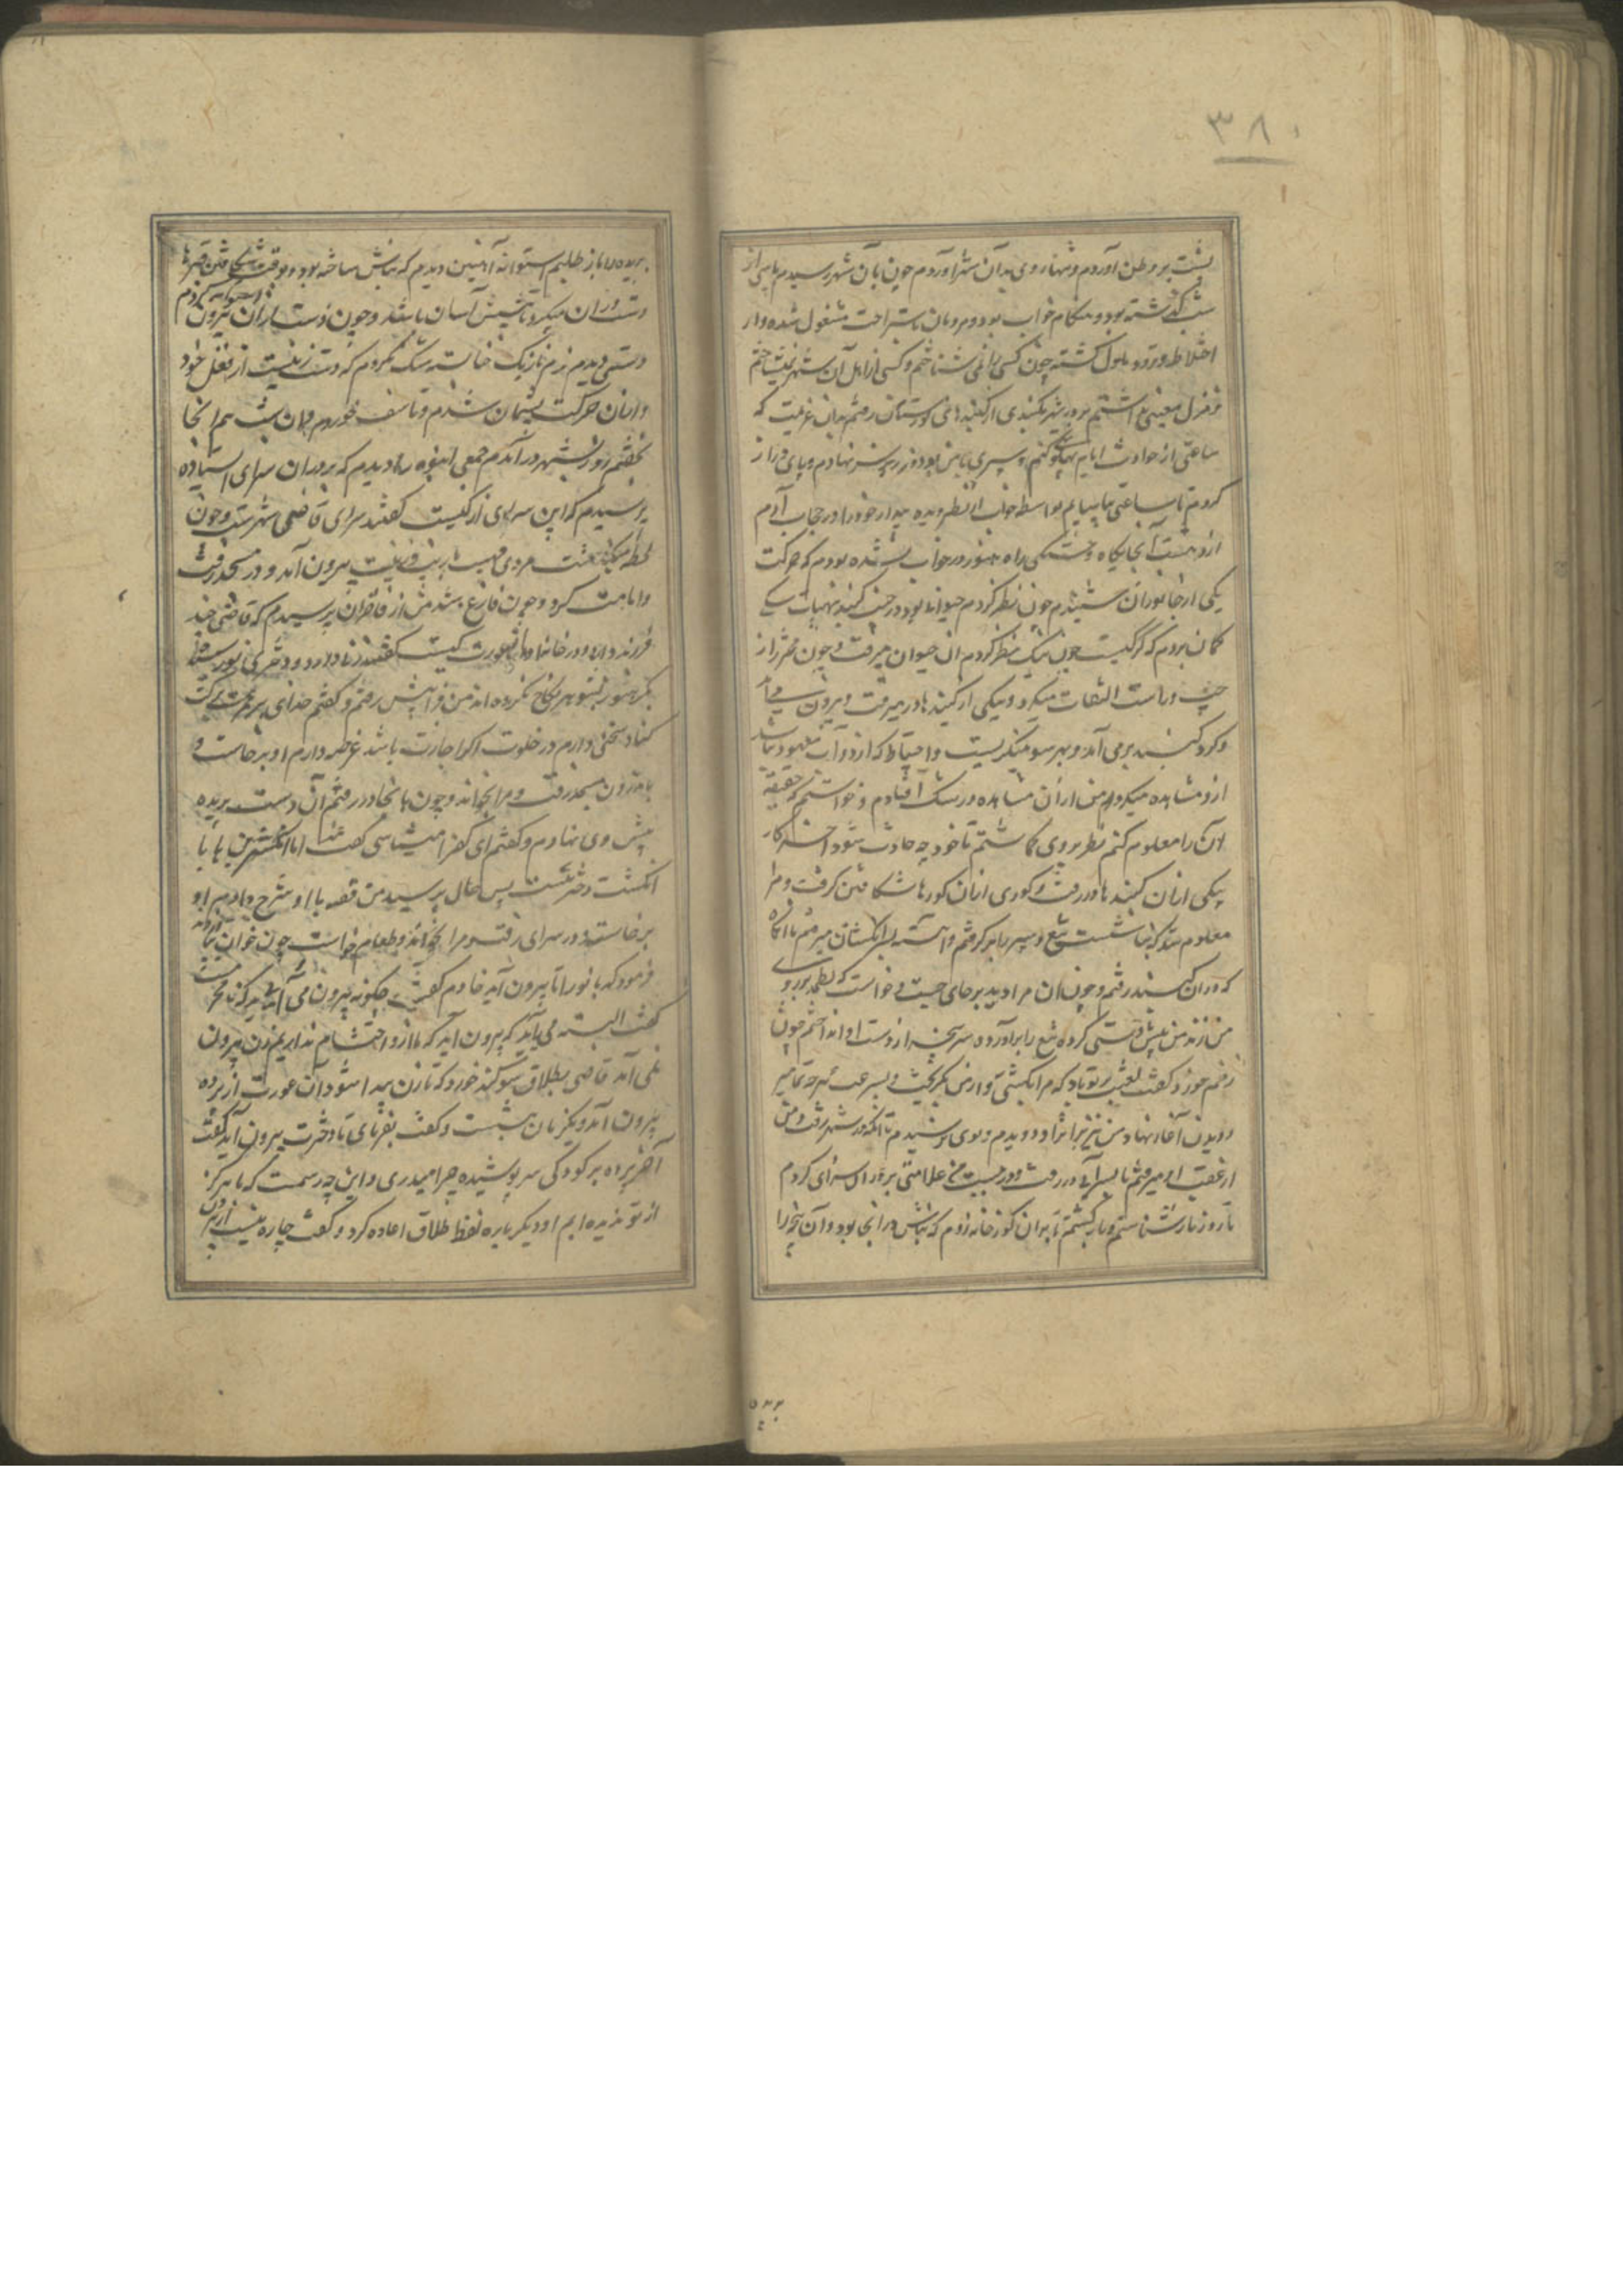 ۳۸
پشت بر وطن آوردم و تنها روی بدان شهر آوردم چون بآن شهر رسیدم پاسی از
شب گذشته بود و هنگام خواب بود و مردمان باستراحت مشغول شده و از
اختلاط و تردد ملول گشته چون کسی را نمی شناختم و کسی از اهل آن شهر نمیشناختم
و منزل معینی نداشتم بر در شهر بگنبدی از گنبدهای گورستان رفتم بدان عزیمت که
ساعتی از حوادث ایام پهلو کنم و سپری با من بود در زیر سر نهادم و پای دراز
کردم تا ساعتی بیاسایم بواسطه خواب از نظر دیده بیدار خود را در حجاب آرم
از دهشت آن جایگاه و خستگی راه هنوز در خواب نشده بودم که حرکت
یکی از جانوران شنیدم چون نظر کردم حیوانی بود در جنب گنبد
گمان بردم که گرگیست چون نیک نظر کردم آن حیوان میرفت و چون محترز از
چپ و راست التفات میکرد و بیکی از گنبدها در میرفت و بیرون می
و گرد گنبد برمی آمد و بهر سو مینگریست و احتیاط که از دواب معهود نباشد
ازو مشاهده میکردم من از آن مشاهده در شک افتادم و خواستم که حقیقت
آن را معلوم کنم نظر بروی گماشتم تا خود چه حادث شود آخر کار
بیکی از آن گنبدها در رفت و گوری از آن گورها شکافتن گرفت و مرا
معلوم شد که نباشست تیغ و سپر را برگرفتم و آهسته بسر انگشتان میرفتم تا آنگاه
که در آن گنبد رفتم و چون آن مرا دید بر جای جست و خواست که لطمه بر روی
من زند من پیش دستی کرده تیغ را برآورده سر پنجه از دست او انداختم چون
زخم خورد گفت لعنت بر تو باد که مرا بکشتی و از من بگریخت و بسرعت هر چه تمامتر
دویدن آغاز نهاد من نیز بر اثر او دویدم و بوی نرسیدم تا آنکه در شهر رفت و من
از عقب او میرفتم تا بسرایی در رفت و در ببست من علامتی بر در آن سرای کردم
تا روز باز شناسم و باز گشتم تا بدان گورخانه روم که نباش در آنجا بود و آن پنجه را
بریده
بریده را باز طلبم استوانه آهنین دیدم که نباش ساخته بود و بوقت شکافتن قبرها
دست در آن میکرد تا نبش آسان باشد و چون دست از آن استوانه بیرون کردم
دستی دیدم نرم نازیک حنا بسته شک نکردم که دست زنیست از فعل خود
و از آن حرکت پشیمان شدم و تاسف خوردم و آن شب هم آنجا
بخفتم روز بشهر در آمدم جمعی انبوه را دیدم که بر در آن سرای استاده
پرسیدم که این سرای از آن کیست گفتند سرای قاضی شهرست و چون
لحظه بگذشت مردی مهیب با زیب و زینت بیرون آمد و در مسجد رفت
و امامت کرد و چون فارغ شد من از حاضران پرسیدم که قاضی چند
فرزند دارد و در خانه او عورت کیست گفتند زنی دارد و دختری
بکر هنوز بشوهر نکاح نکرده اند من فرا پیش رفتم و گفتم خدای بر عمرت برکت
کناد سخنی دارم در خلوت اگر اجازت باشد عرضه دارم او برخاست و
باندرون مسجد رفت و مرا بخواند و چون بآنجا در رفتم آن دست بریده
پیش وی نهادم و گفتم این کف را میشناسی گفت اما انگشترین باها با
انگشت دخترست پس حال پرسید من قصه با او شرح دادم او
برخاست و در سرای رفت و مرا بخواند و طعام خواست چون خوان بنهاد
فرمود که بانو را تا بیرون آید خادم گفت چگونه بیرون می آید که نامحرمست
گفت البته می باید که بیرون آید که ما ازو احتشام نداریم زن بیرون
نمی آمد قاضی بطلاق سوگند خورد که تا زن بیدا شود آن عورت از پرده
بیرون آمد و یکزمان بنشست و گفت بفرمای تا دخترت بیرون آید گفت
آخر پرده بر کودکی سر پوشیده چرا میدری و این چه رسمست که ما هرگز
از تو ندیده ایم او دیگر باره لفظ طلاق اعاده کرد و گفت چاره نیست از بیرون